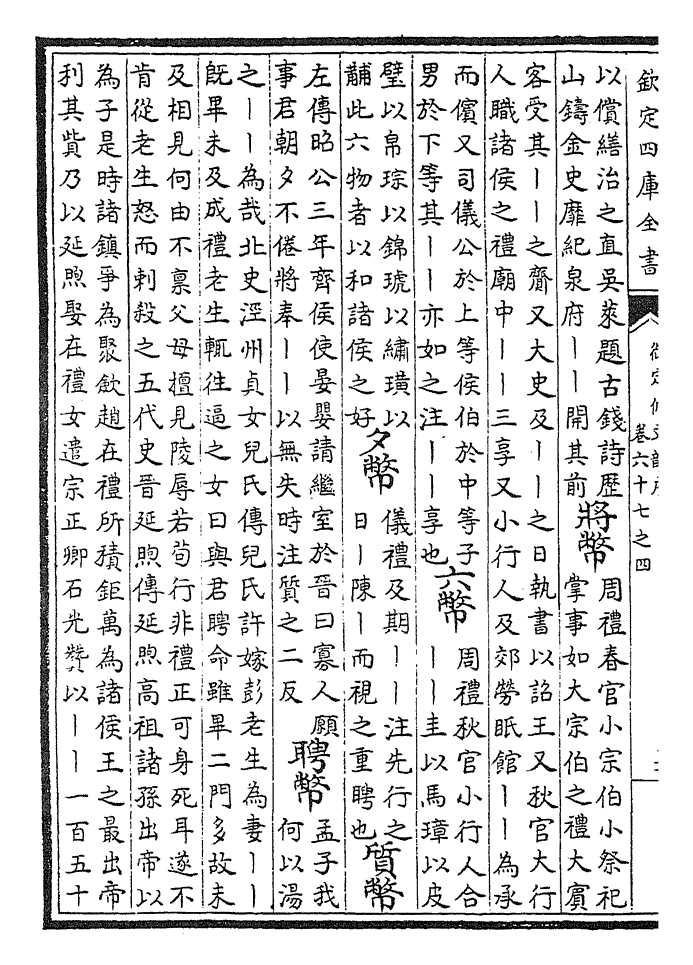 欽定四庫全書
卷六十七之四
以償繕治之直吳萊題古錢詩歷
山鑄金史靡紀泉府丨丨開其前
將幣
周禮春官小宗伯小祭祀
掌事如大宗伯之禮大賓
客受其丨丨之齎又大史及丨丨之日執書以詔王又秋官大行
人職諸侯之禮廟中丨丨三享又小行人及郊勞眂館丨丨為承
而儐又司儀公於上等侯伯於中等子
男於下等其丨丨亦如之注丨丨享也
六幣
周禮秋官小行人合
丨丨圭以馬璋以皮
璧以帛琮以錦琥以繡璜以
黼此六物者以和諸侯之好
夕幣
儀禮及期丨丨注先行之
日丨陳丨而視之重聘也
質幣
左傳昭公三年齊侯使晏嬰請繼室於晉曰寡人願
事君朝夕不倦將奉丨丨以無失時注質之二反
聘幣
孟子我
何以湯
之丨丨為哉北史涇州貞女兒氏傳兒氏許嫁彭老生為妻丨丨
既畢未及成禮老生輒往逼之女曰與君聘命雖畢二門多故未
及相見何由不禀父母擅見陵辱若茍行非禮正可身死耳遂不
肯從老生怒而刺殺之五代史晉延煦傳延煦高祖諸孫出帝以
為子是時諸鎮爭為聚歛趙在禮所積鉅萬為諸侯王之最出帝
利其貲乃以延煦娶在禮女遣宗正卿石光贊以丨丨一百五十